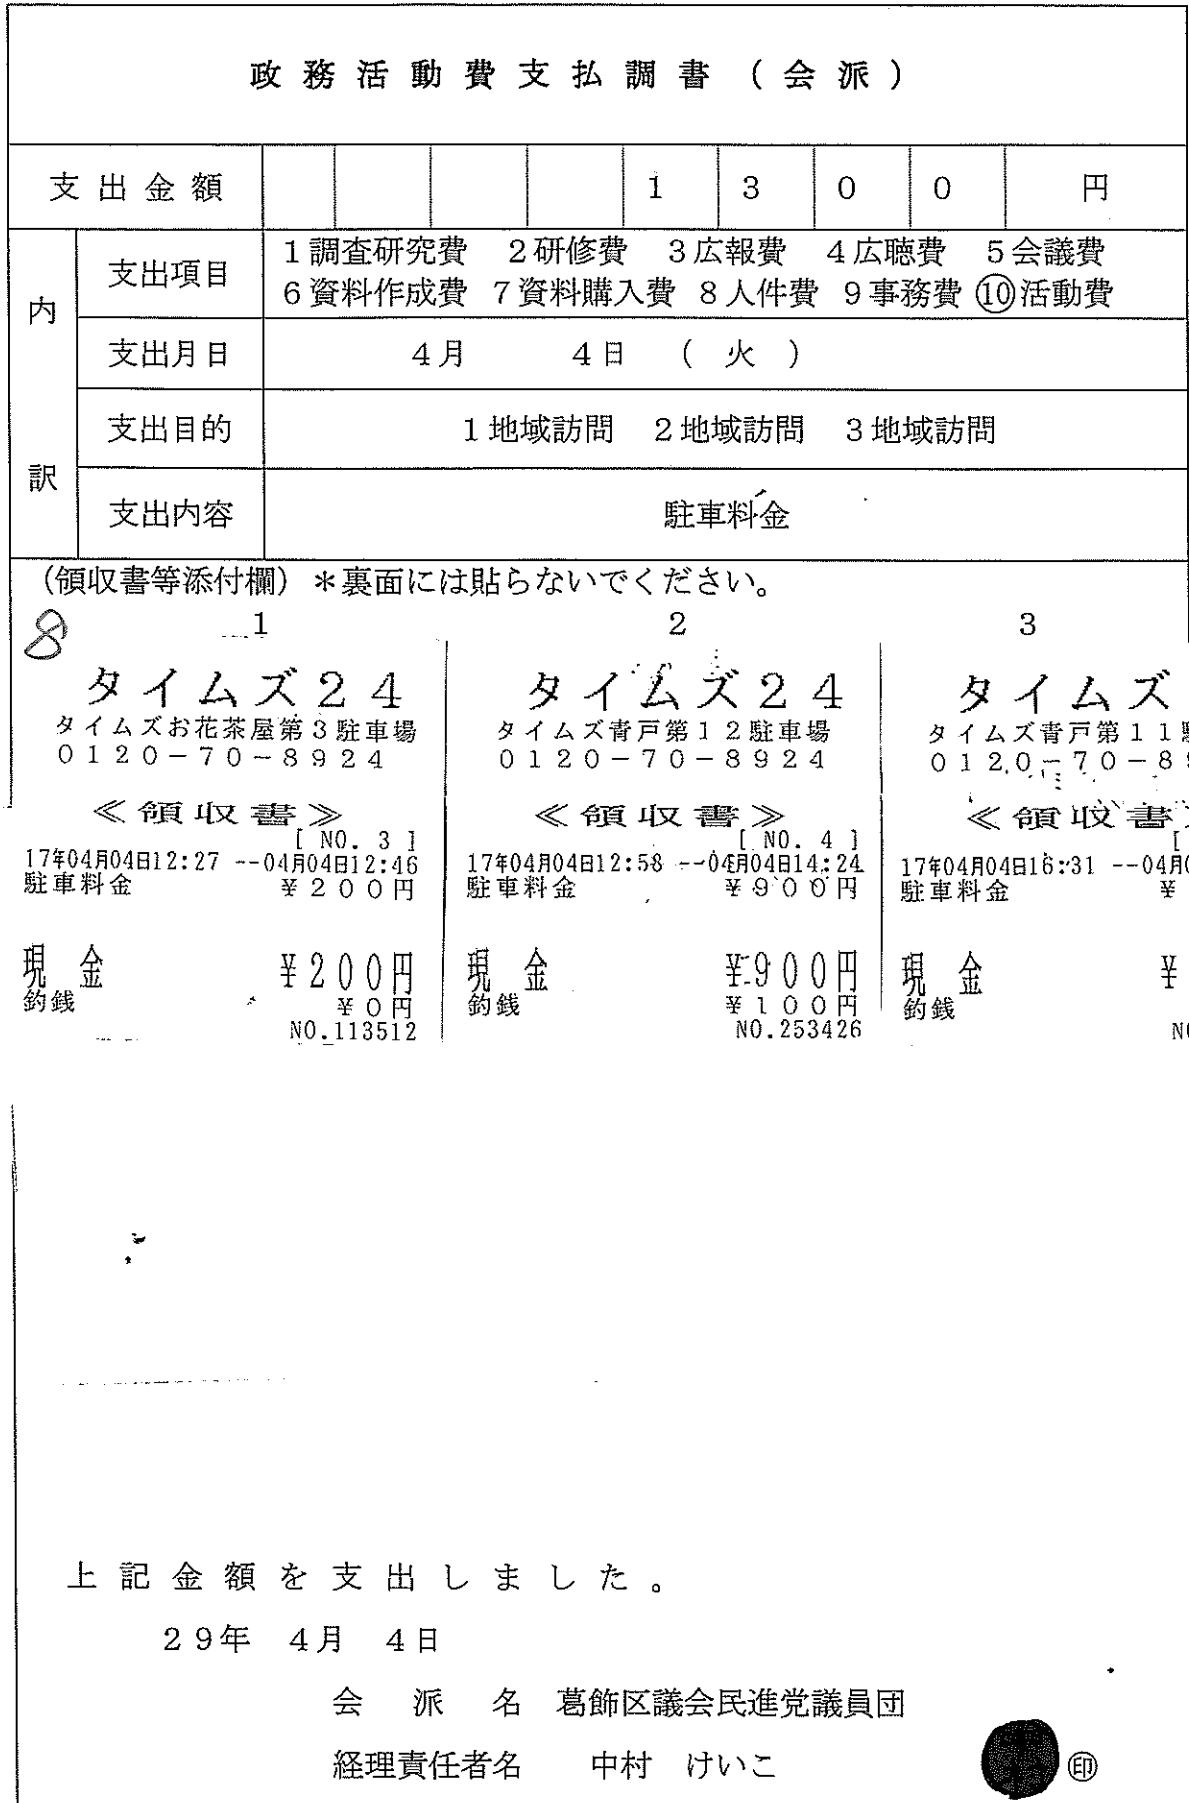 政務活動費支払調書（会派）
支出金額 1 3 0 0 円
内訳
支出項目 1調査研究費 2研修費 3広報費 4広聴費 5会議費
6資料作成費 7資料購入費 8人件費 9事務費 ⑩活動費
支出月日 4月 4日 (火)
支出目的 1地域訪問 2地域訪問 3地域訪問
支出内容 駐車料金
（領収書等添付欄）＊裏面には貼らないでください。
8
1
タイムズ24
タイムズお花茶屋第3駐車場
0120-70-8924
≪領収書≫
[ NO. 3 ]
17年04月04日12:27 --04月04日12:46
駐車料金 ¥200円
現金 ¥200円
釣銭 ¥0円
NO.113512
2
タイムズ24
タイムズ青戸第12駐車場
0120-70-8924
≪領収書≫
[ NO. 4 ]
17年04月04日12:58 --04月04日14:24
駐車料金 ¥900円
現金 ¥900円
釣銭 ¥100円
NO.253426
3
タイムズ
タイムズ青戸第11
0120-70-8
≪領収書
[
17年04月04日16:31 --04月
駐車料金 ¥
現金 ¥
釣銭
上記金額を支出しました。
29年 4月 4日
会派名 葛飾区議会民進党議員団
経理責任者名 中村 けいこ ㊞